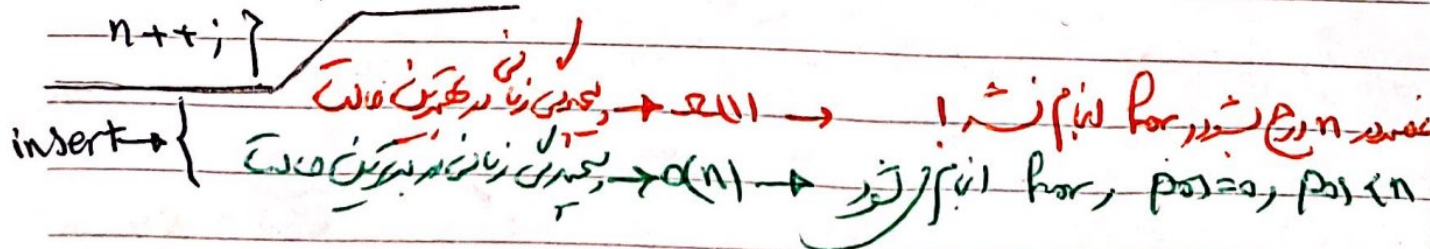 n++; }
insert → { پیچیدگی زمانی در بهترین حالت → Ω(1) → عنصر در n درج شود، for انجام نشد!
پیچیدگی زمانی در بدترین حالت → O(n) → for انجام می‌شود pos=0, pos<n